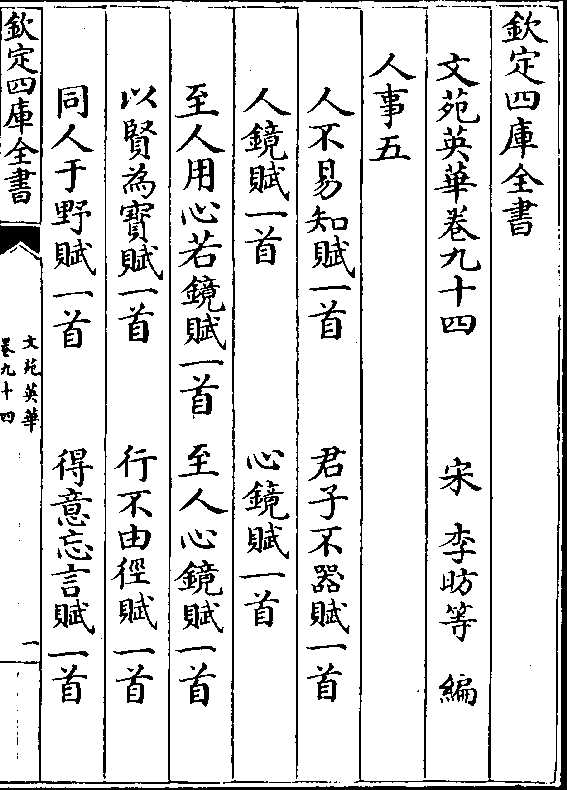 欽定四庫全書
文苑英華卷九十四
宋 李昉等 編
人事五
人不易知賦一首 君子不器賦一首
人鏡賦一首 心鏡賦一首
至人用心若鏡賦一首 至人心鏡賦一首
以賢為寶賦一首 行不由徑賦一首
同人于野賦一首 得意忘言賦一首
欽定四庫全書
文苑英華
卷九十四
一